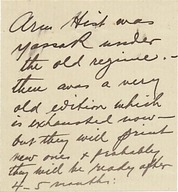 Arm Hist was
under
the old regime. -
there was a very
old edition which
is exhausted now -
but they will print
new one, & probably
they will be ready after
4-5 months.